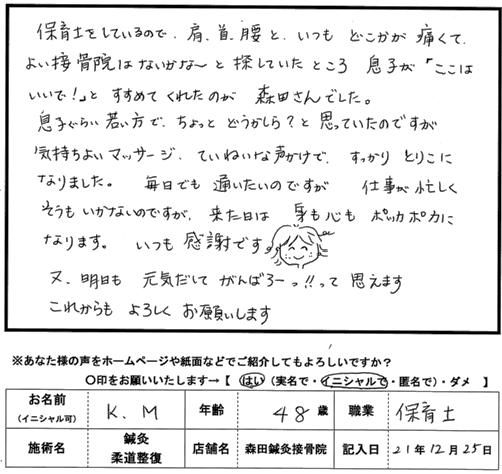 保育士をしているので、肩、首、腰と、いつも どこかが 痛くて、
よい接骨院はないかな〜と 探していた ところ 息子が「ここは
いいで!」と すすめて くれたのが 森田さんでした。
息子ぐらい 若い方で、ちょっと どうかしら?と 思っていたのですが
気持ちよいマッサージ、ていねいな声かけで、すっかり とりこに
なりました。 毎日でも 通いたいのですが 仕事が忙しく
そうもいかないのですが、来た日は 身も心も ポッカポカに
なります。 いつも 感謝です
又、明日も 元気だして がんばろーっ!!って 思えます
これからも よろしく お願いします
※あなた様の声をホームページや紙面などでご紹介してもよろしいですか?
〇印をお願いいたします→【 はい (実名で・イニシャルで・匿名で)・ダメ 】
お名前 (イニシャル可) K.M 年齢 48歳 職業 保育士
施術名 鍼灸 柔道整復 店舗名 森田鍼灸接骨院 記入日 21年12月25日